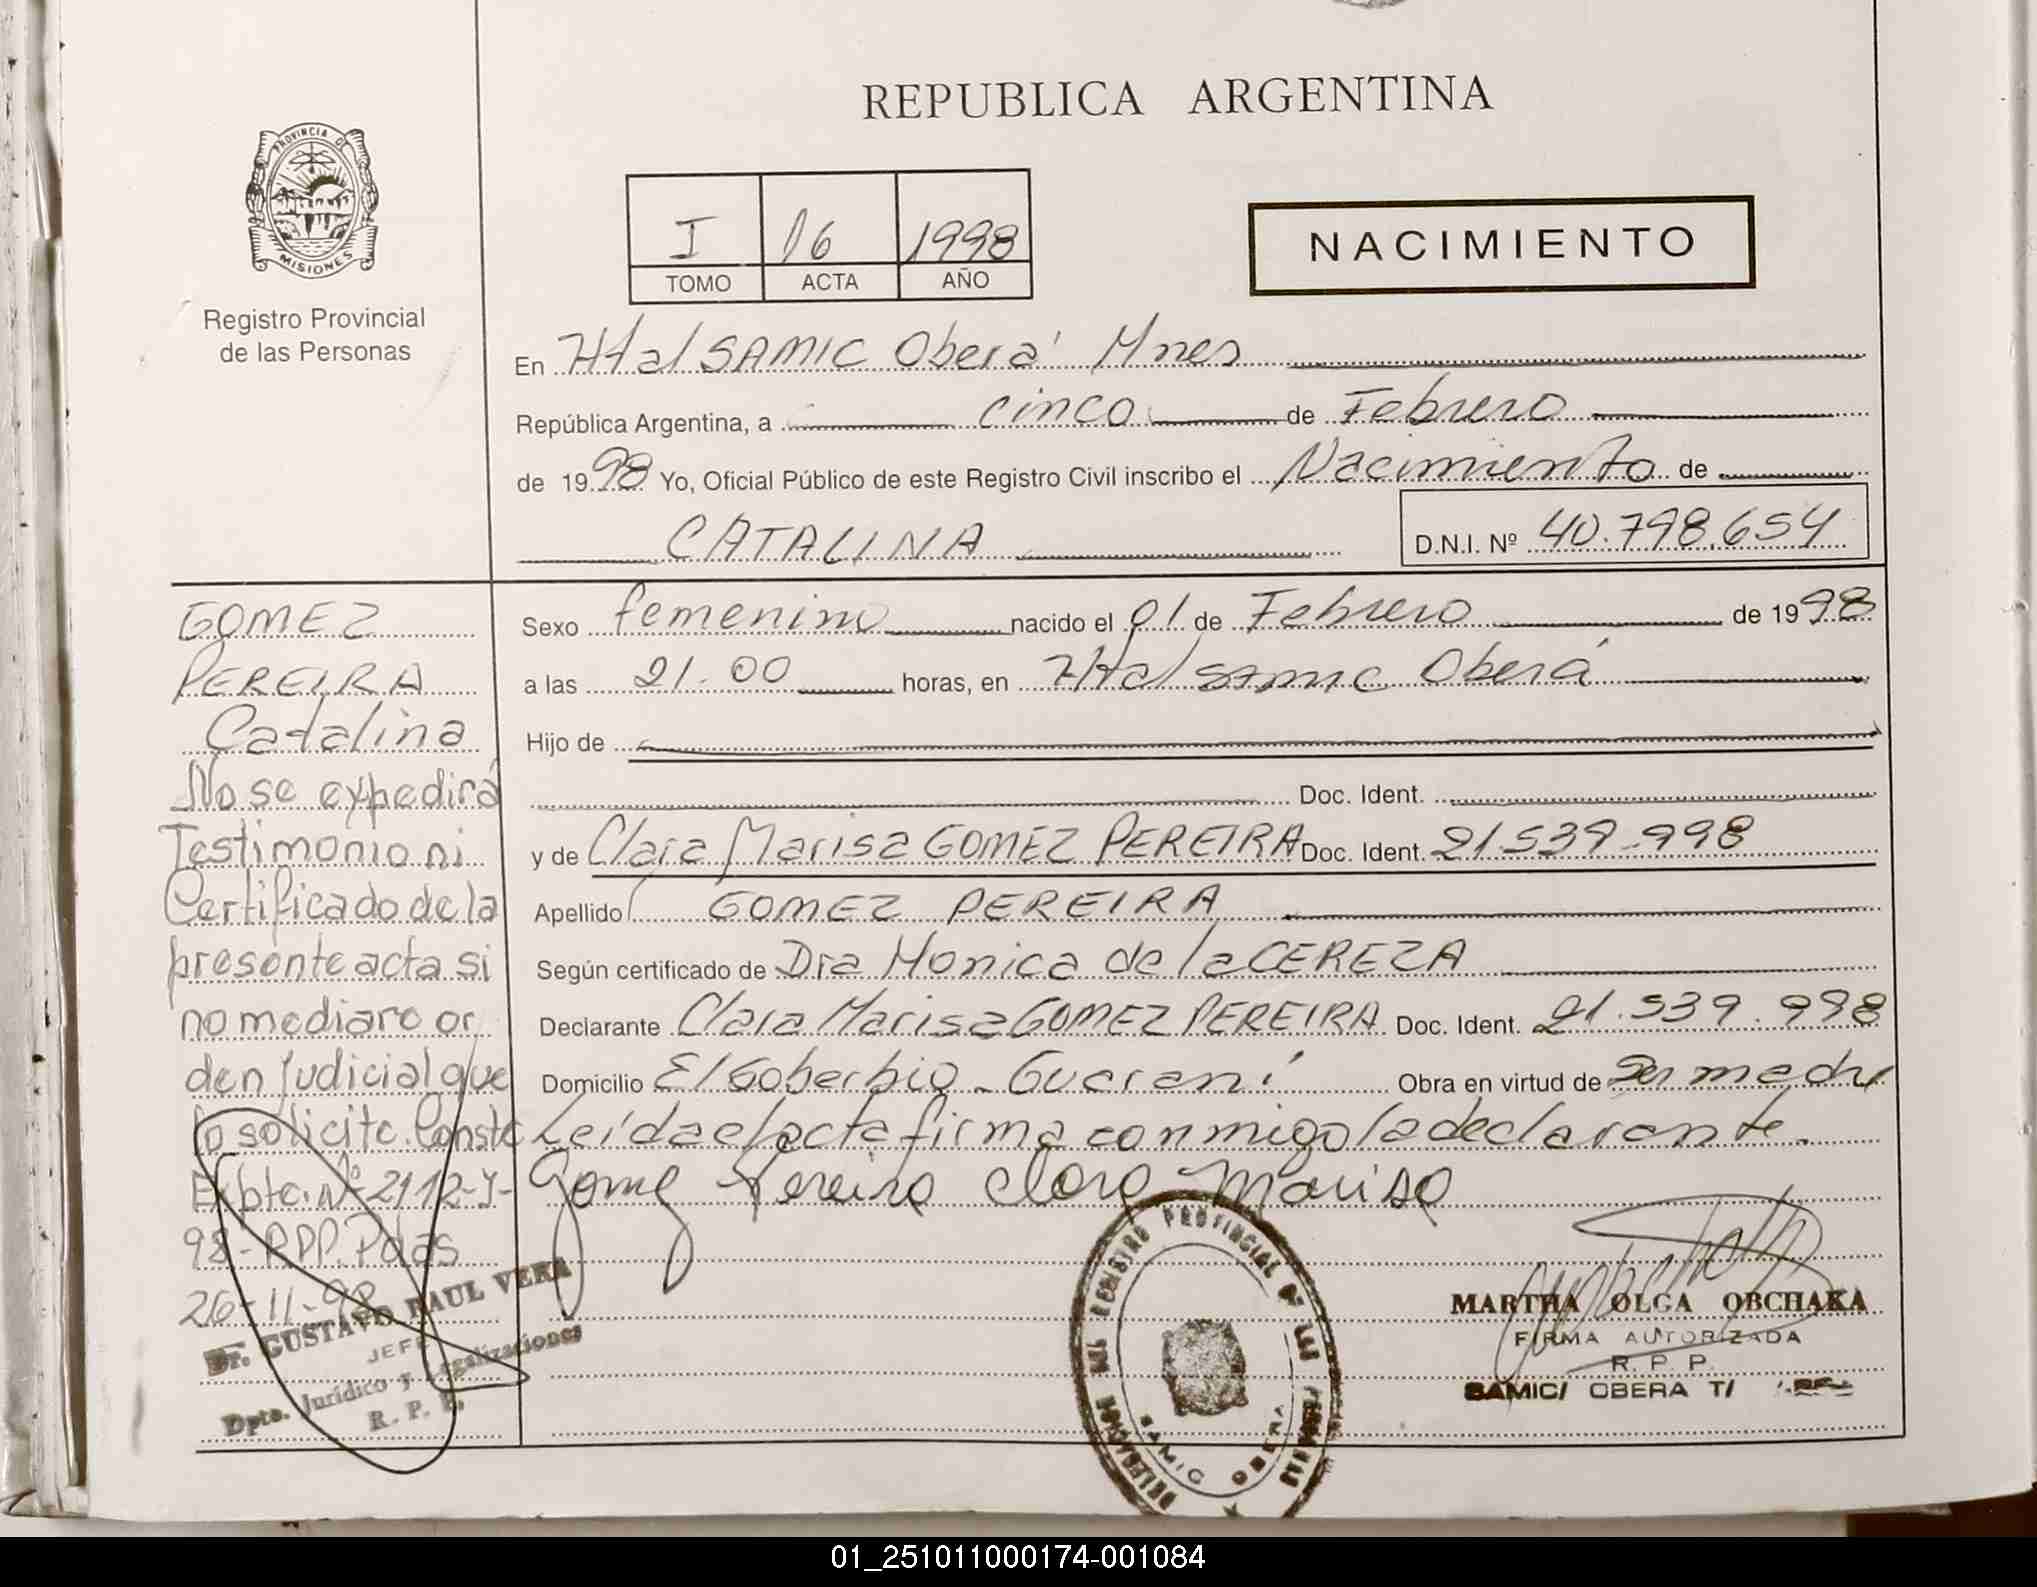 PROVINCIA DE
MISIONES
Registro Provincial
de las Personas
REPUBLICA ARGENTINA
I 16 1998
TOMO ACTA AÑO
NACIMIENTO
En Htal SAMIC Oberá Mnes
República Argentina, a cinco de Febrero
de 1998 Yo, Oficial Público de este Registro Civil inscribo el Nacimiento de
CATALINA D.N.I. Nº 40.798.654
GOMEZ
PEREIRA
Catalina
No se expedirá
Testimonio ni
Certificado de la
presente acta si
no mediare or
den Judicial que
lo solicite. Conste
Expte. Nº 2112-Y-
98-RPP. Pdas
26-11-98
Dr. GUSTAVO RAUL VERA
JEFE
Dpto. Jurídico y Legalizaciones
R. P. P.
Sexo femenino nacido el 01 de Febrero de 1998
a las 21.00 horas, en Htal SAMIC Oberá
Hijo de
Doc. Ident.
y de Clara Marisa GOMEZ PEREIRA Doc. Ident. 21.539.998
Apellido GOMEZ PEREIRA
Según certificado de Dra Monica de la CEREZA
Declarante Clara Marisa GOMEZ PEREIRA Doc. Ident. 21.539.998
Domicilio El Soberbio - Guaraní Obra en virtud de Ser madre
Leída el acta firma conmigo la declarante.
Gomez Pereira Clara Marisa
DELEGACION DEL REGISTRO PROVINCIAL DE LAS PERSONAS
SAMIC OBERA
MARTHA OLGA OBCHAKA
FIRMA AUTORIZADA
R. P. P.
SAMIC/ OBERA T/
01_251011000174-001084